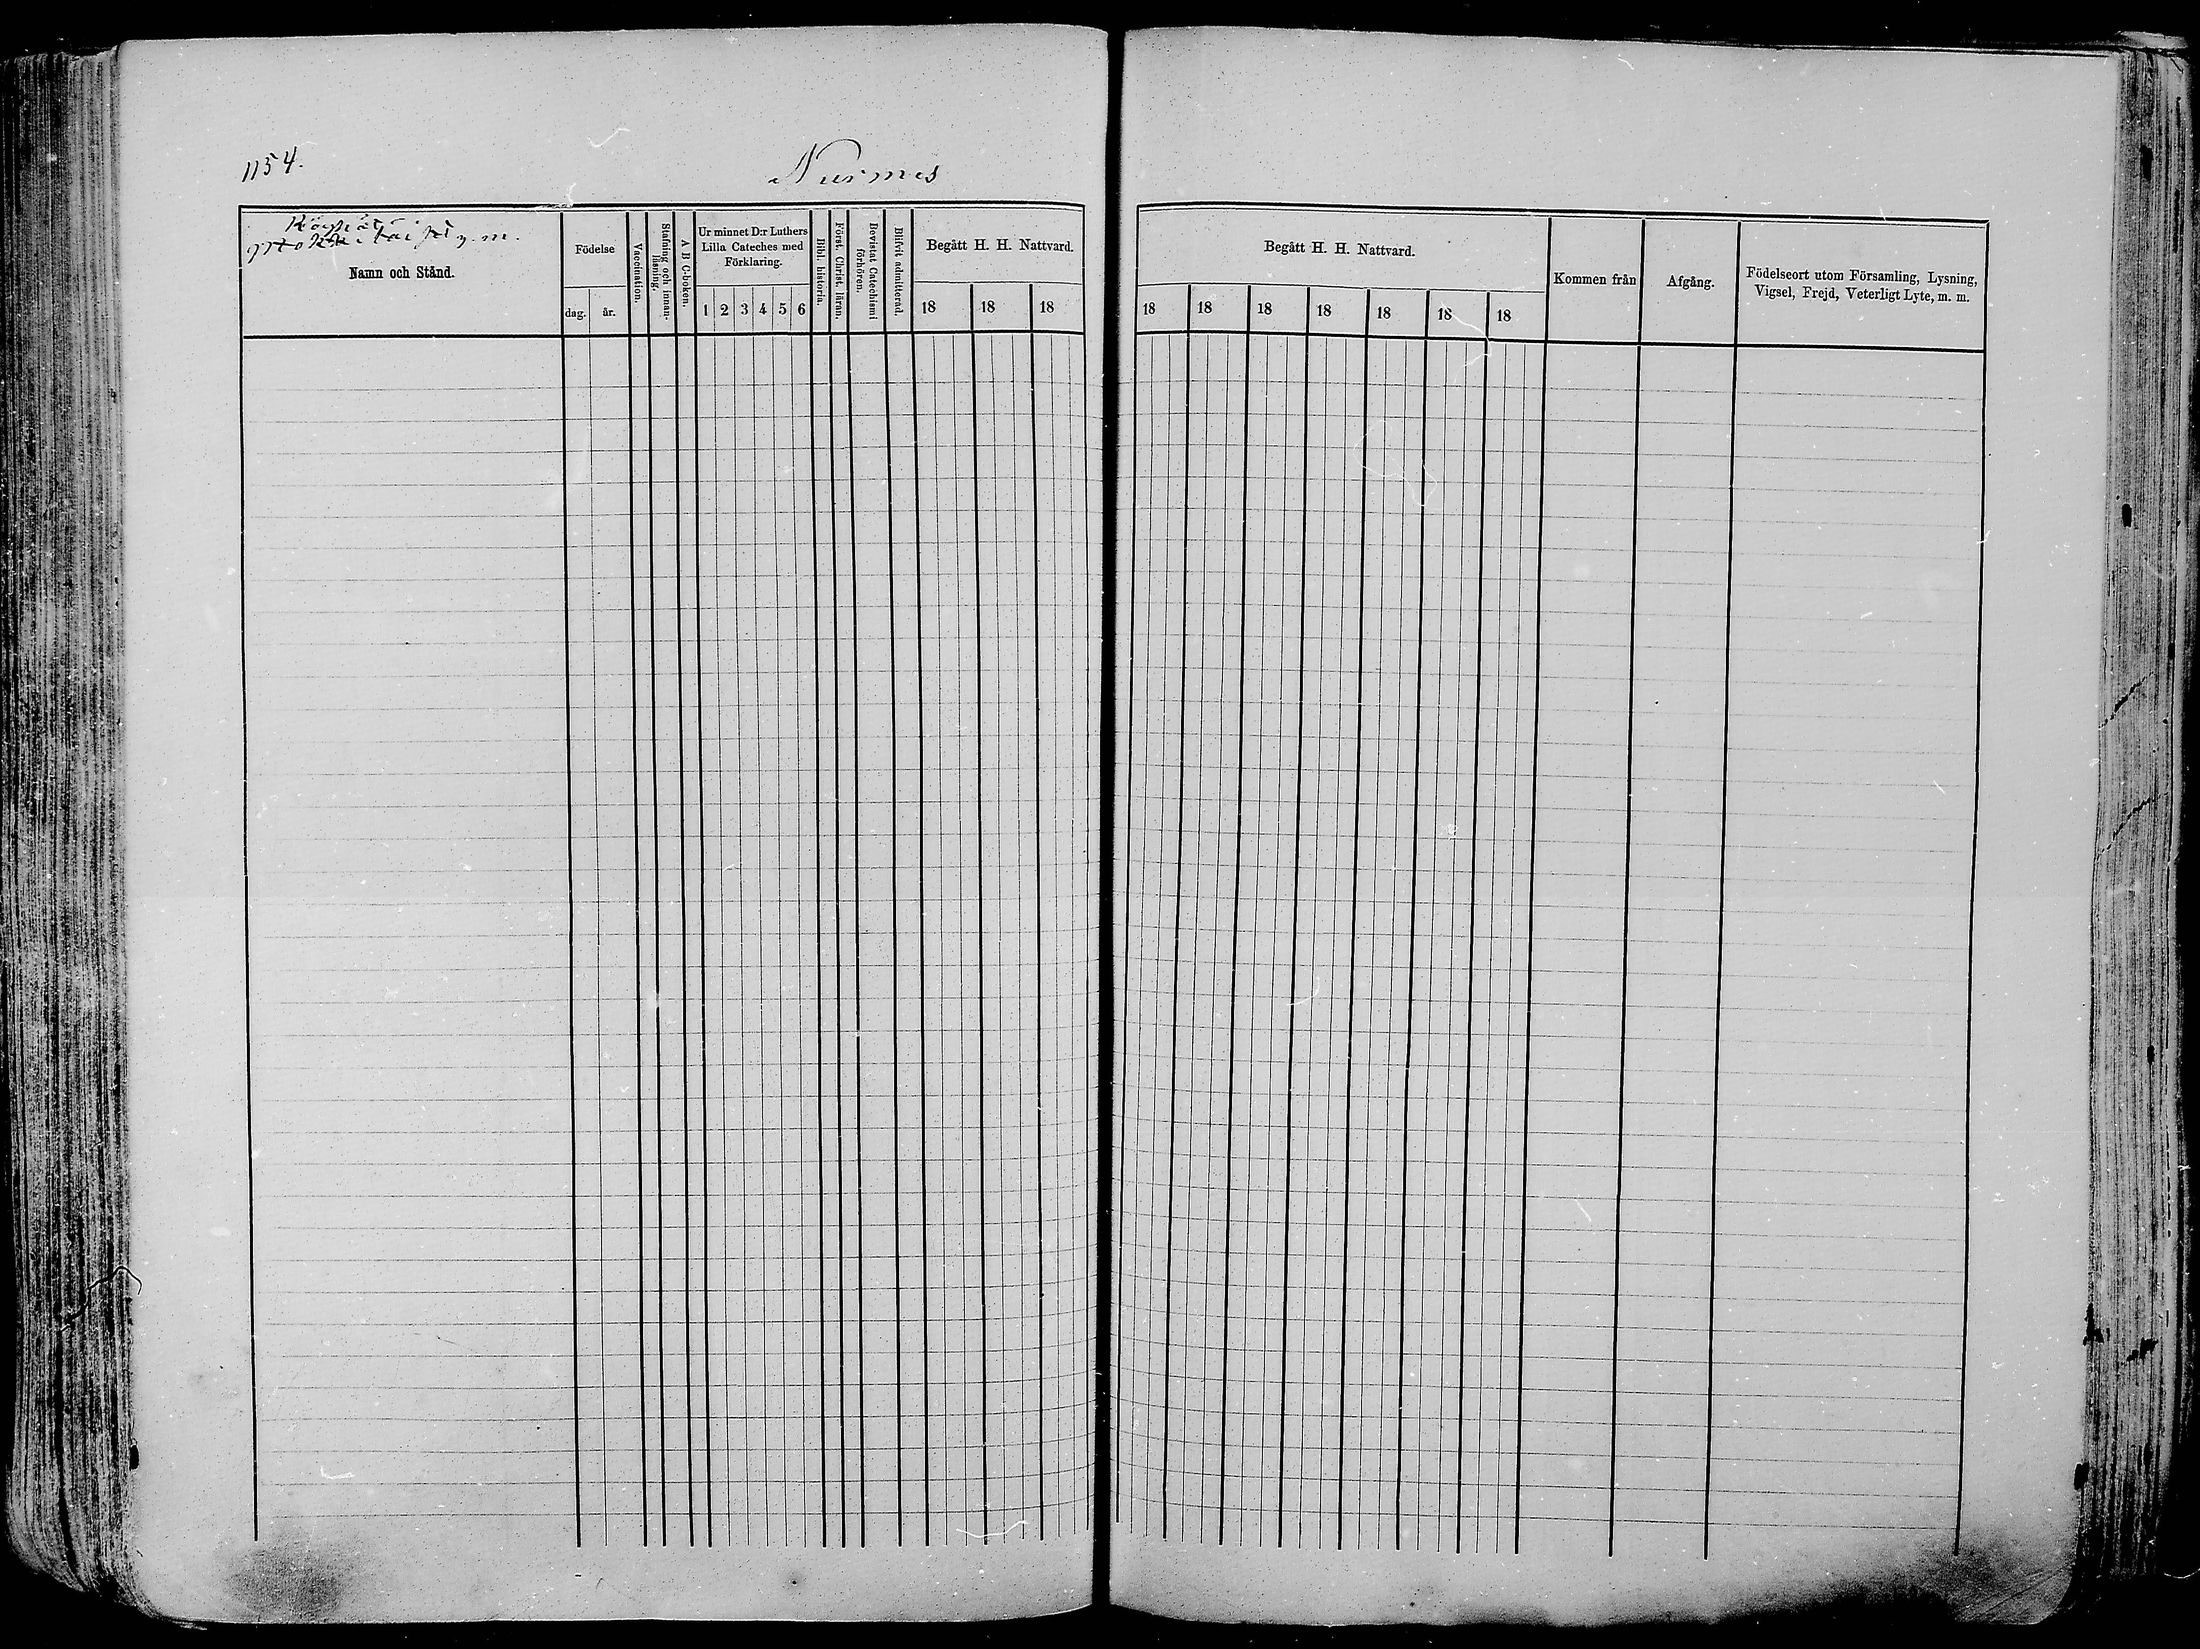 1154.
Nurmes
y. m.
Namn och Stånd.
Födelse
dag. år.
Vaccination.
Stafning och innan-
läsning.
A B C-boken.
Ur minnet D:r Luthers
Lilla Cateches med
Förklaring.
1 2 3 4 5 6
Bibl. historia.
Först. Christ. läran.
Bevistat Catechismi
förhören.
Blifvit admitterad.
Begått H. H. Nattvard.
18 18 18
Begått H. H. Nattvard.
18 18 18 18 18 18 18
Kommen från
Afgång.
Födelseort utom Församling, Lysning,
Vigsel, Frejd, Veterligt Lyte, m. m.